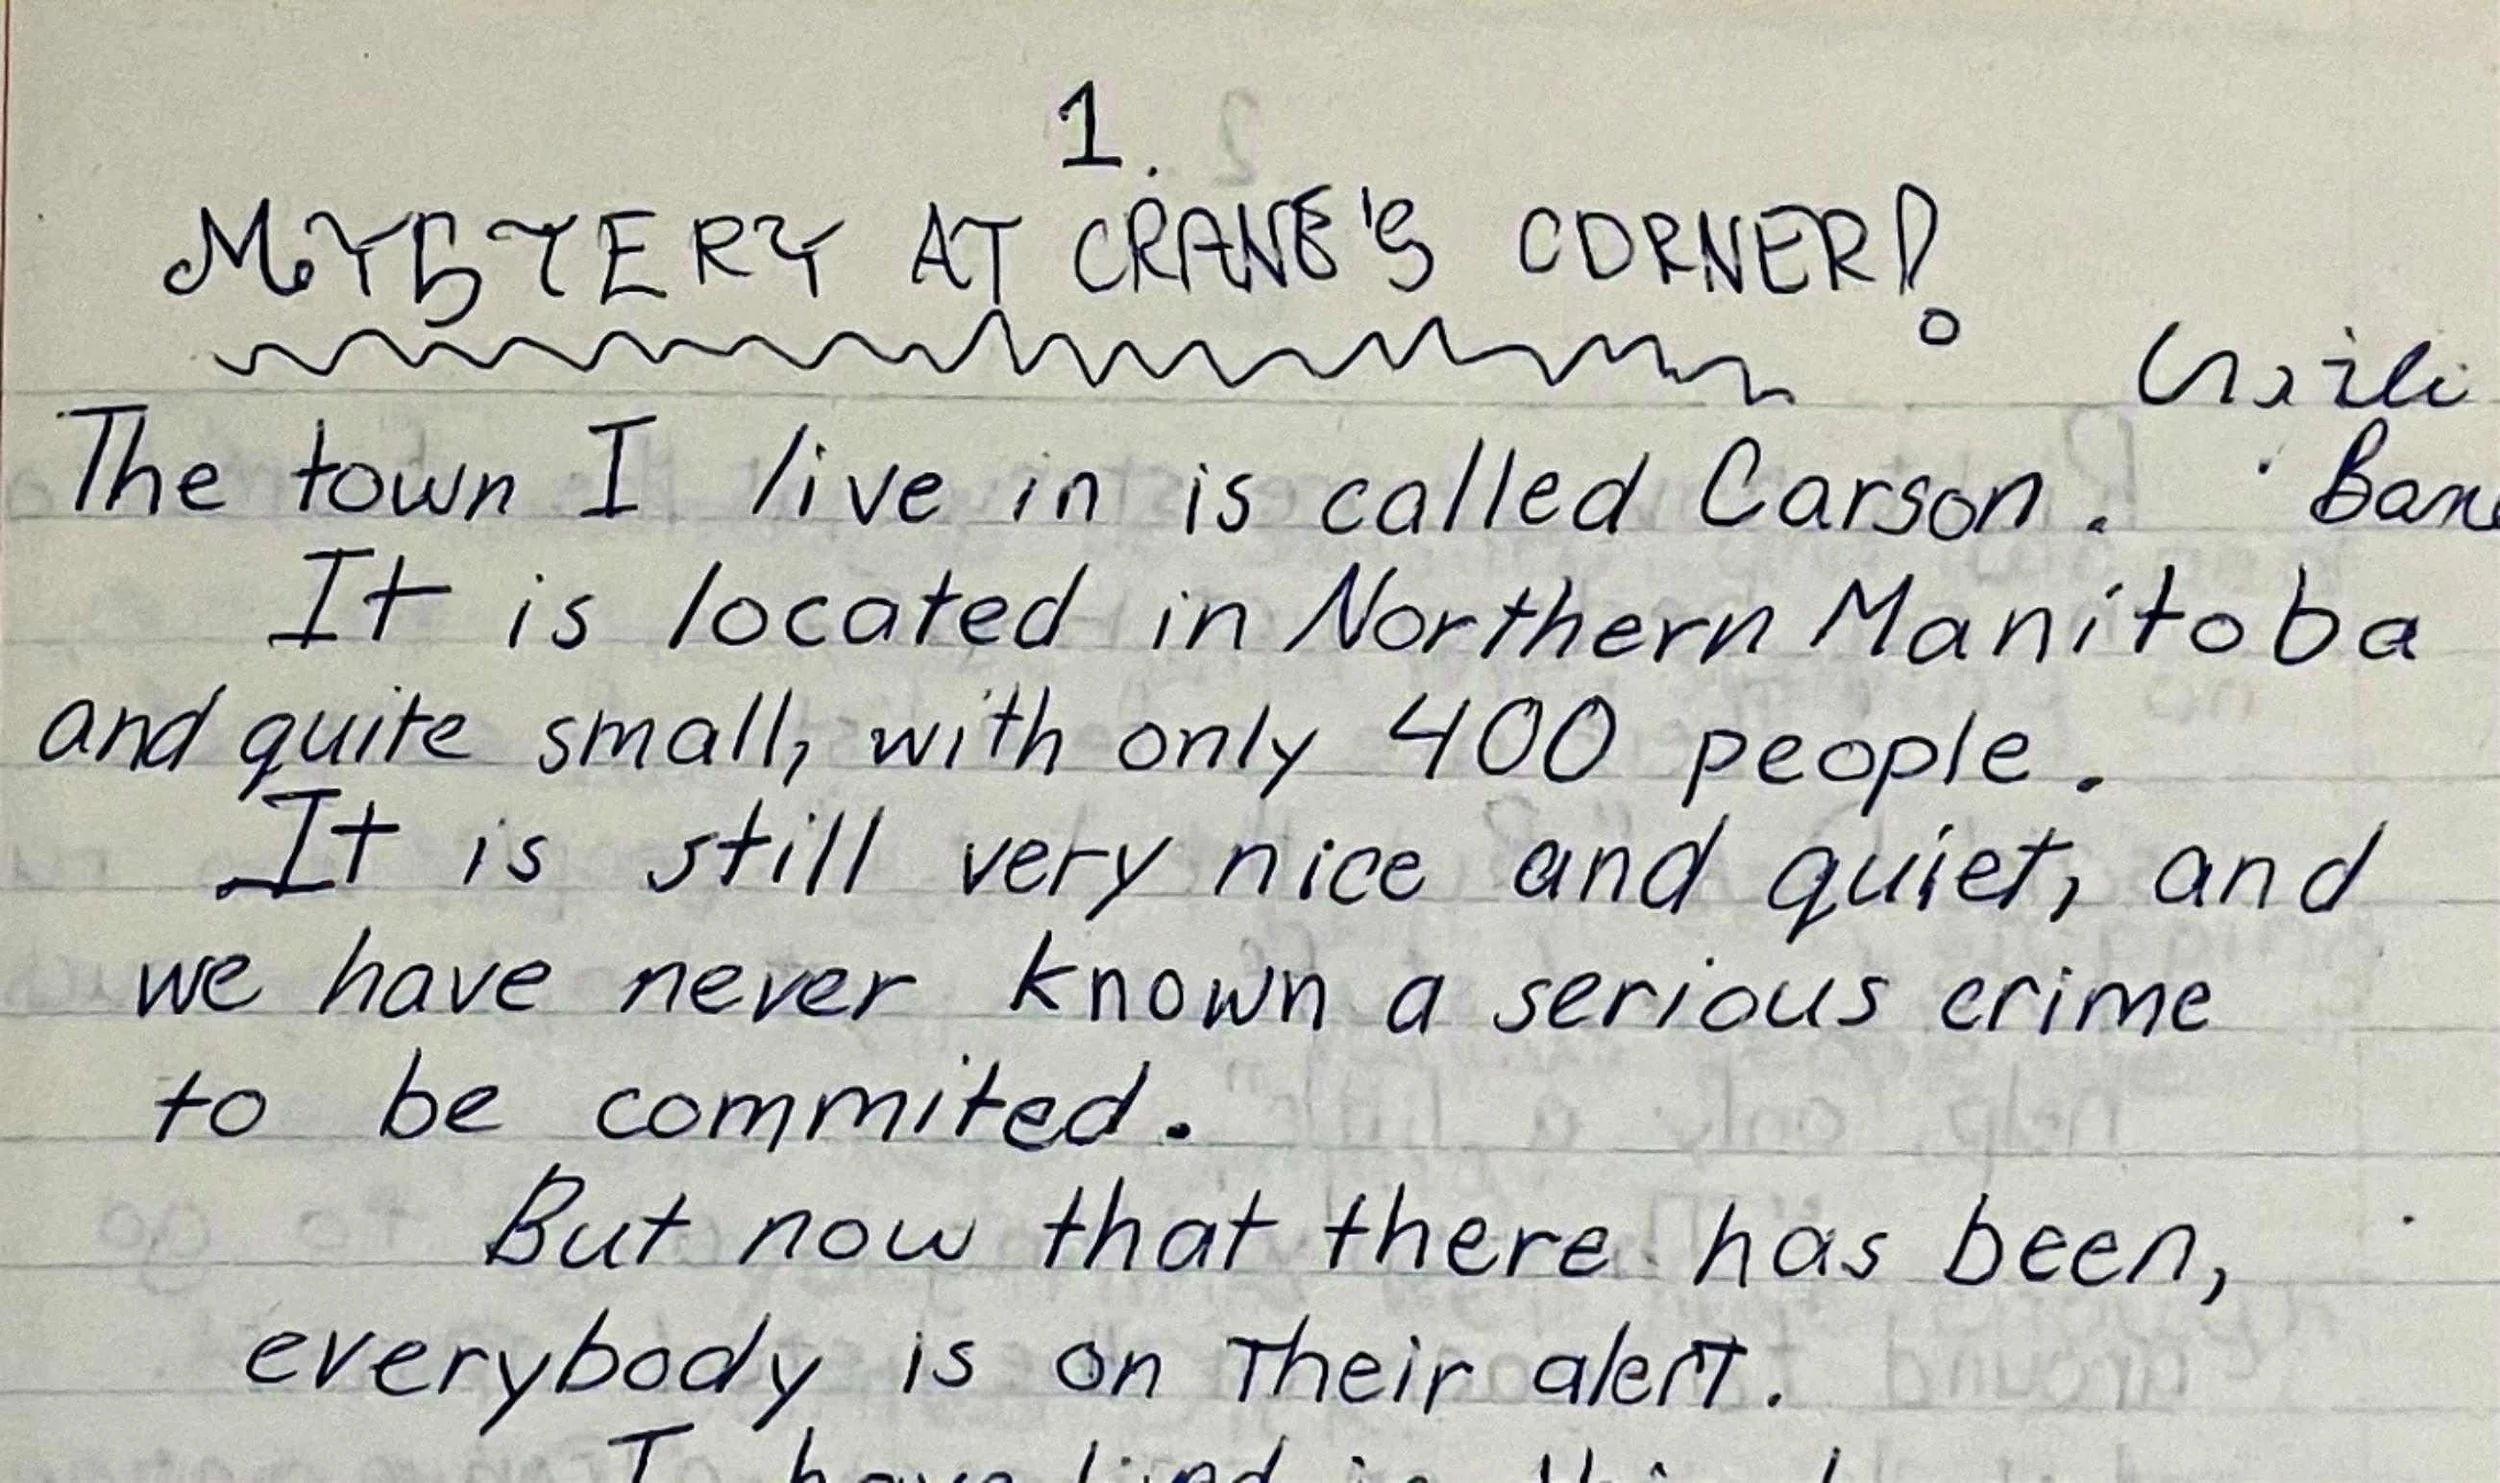 1.
MYSTERY AT CRANE'S CORNER!
The town I live in is called Carson.
It is located in Northern Manitoba
and quite small, with only 400 people.
It is still very nice and quiet, and
we have never known a serious crime
to be commited.
But now that there has been,
everybody is on their alert.